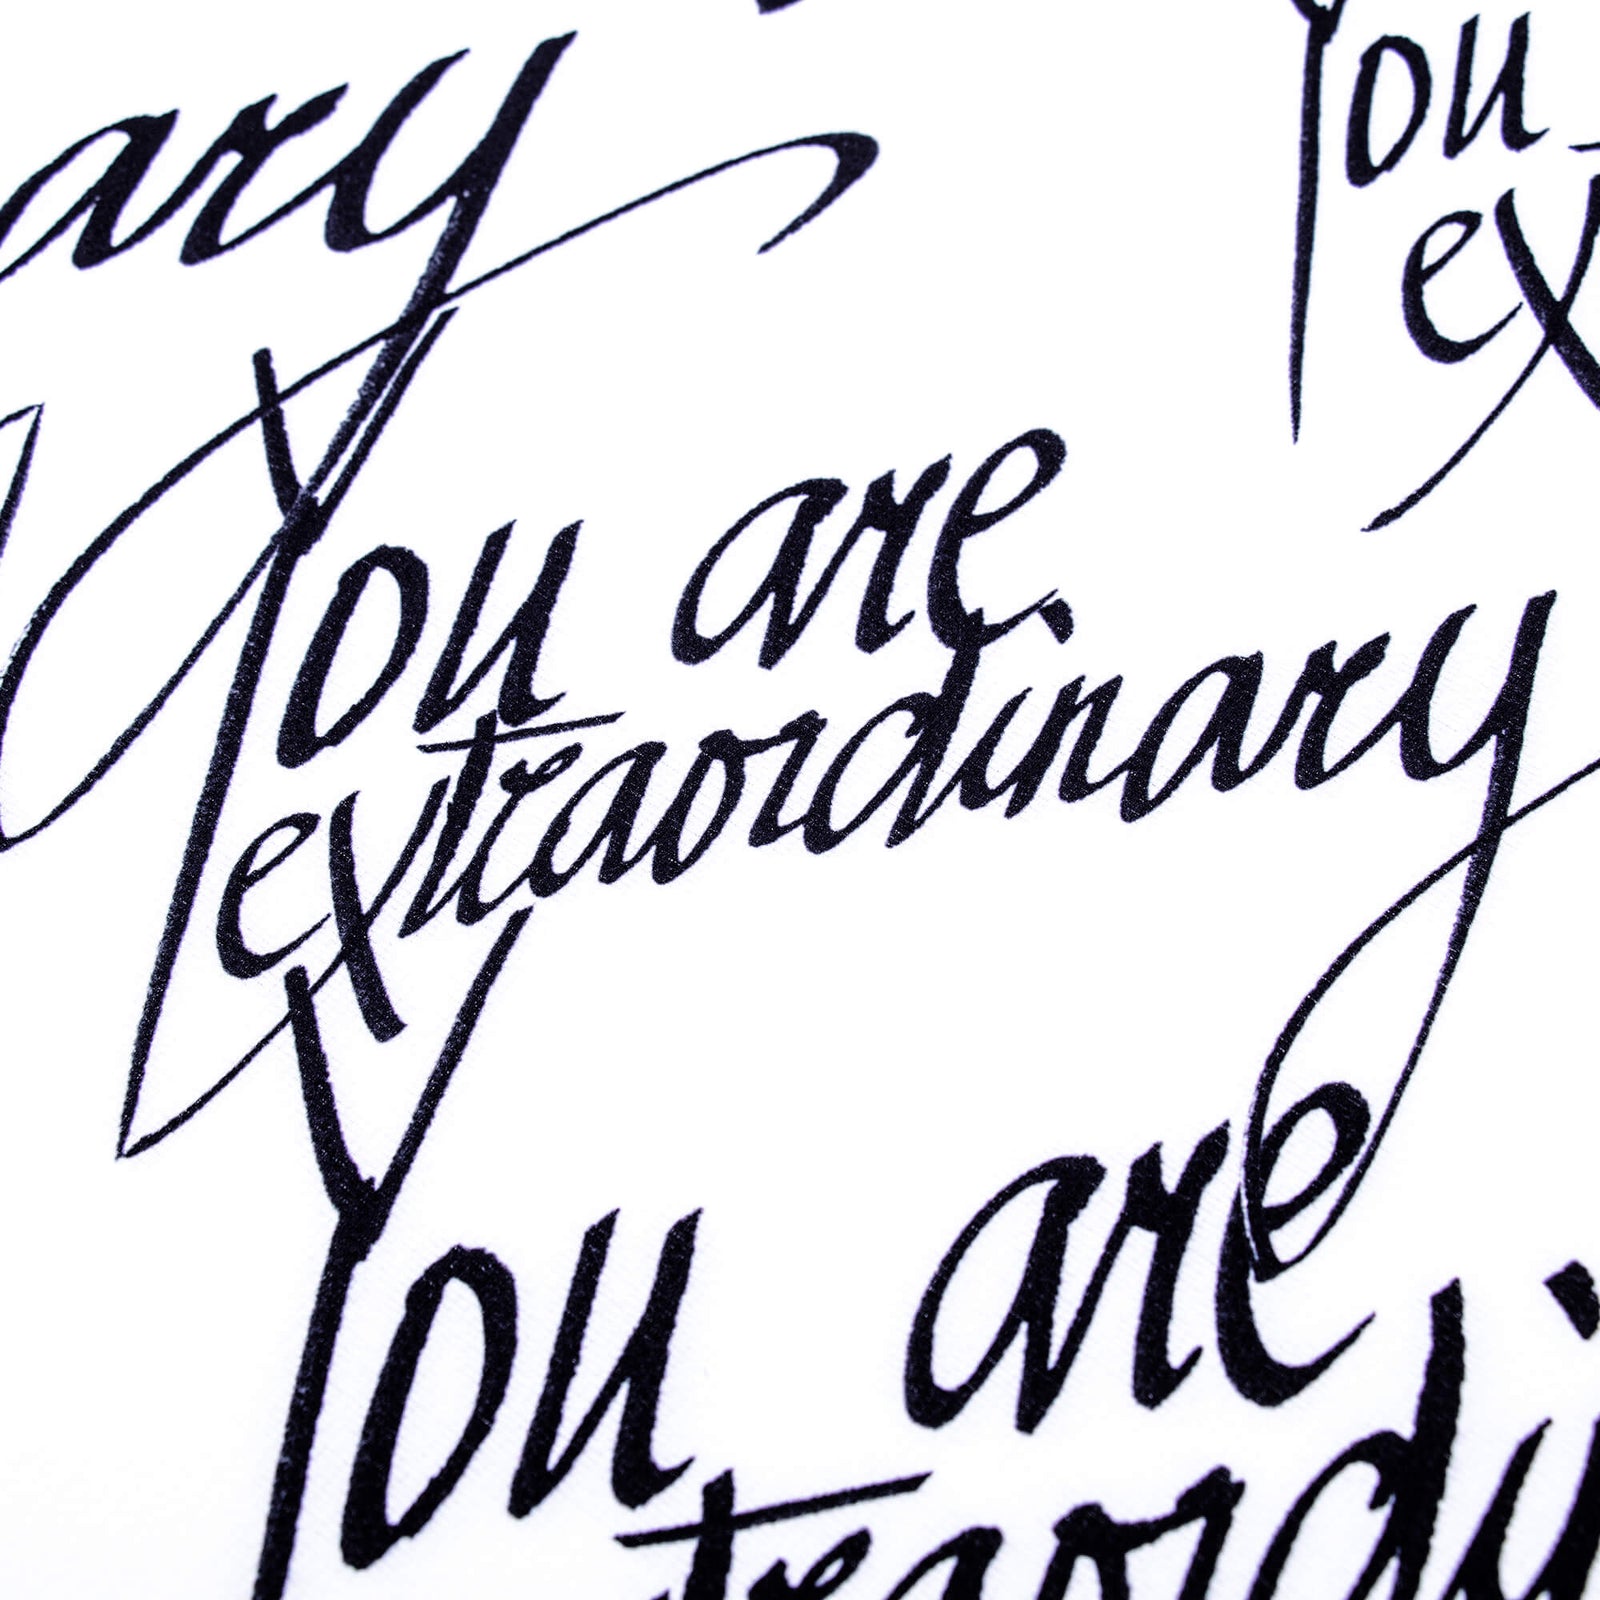 ary
You
ex
You are
extraordinary
You are
traordi